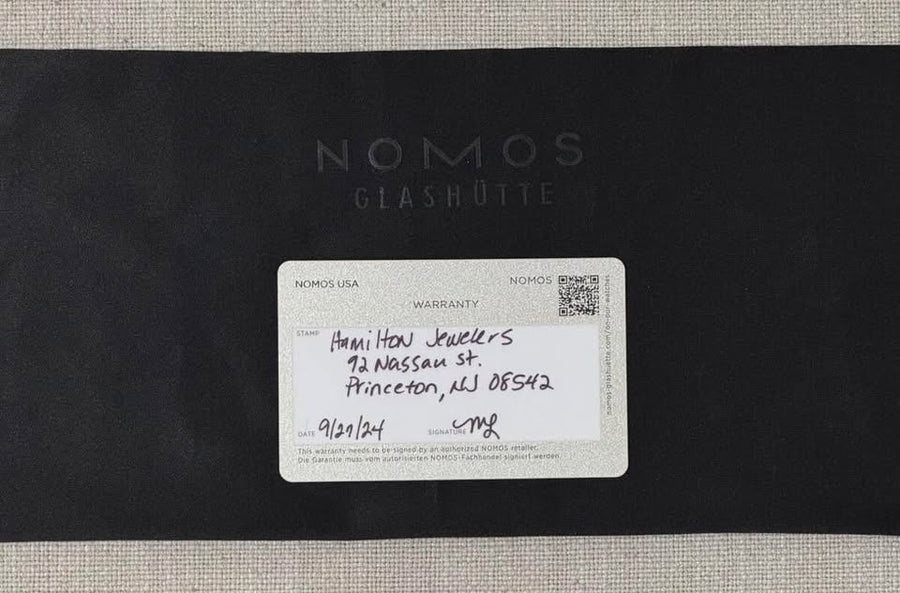 NOMOS
GLASHÜTTE
NOMOS USA
NOMOS
WARRANTY
nomos-glashuette.com/on-our-watches
STAMP
Hamilton Jewelers
92 Nassau St.
Princeton, NJ 08542
DATE 9/27/24 SIGNATURE ML
This warranty needs to be signed by an authorized NOMOS retailer.
Die Garantie muss vom autorisierten NOMOS-Fachhandel signiert werden.